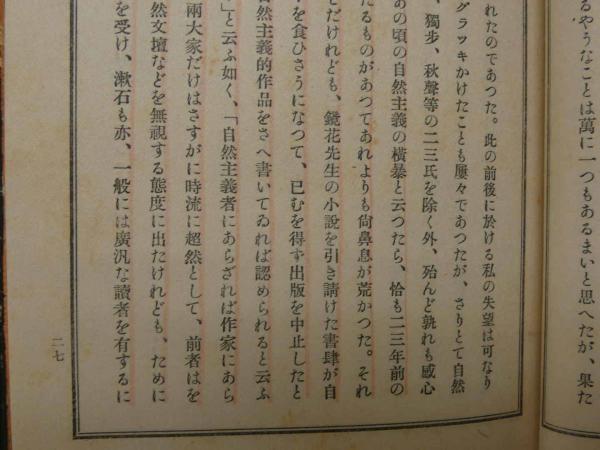 るやうなことは萬に一つもあるまいと思へたが、果た
れたのであつた。此の前後に於ける私の失望は可なり
グラツキかけたことも屢々であつたが、さりとて自然
、獨步、秋聲等の二三氏を除く外、殆んど孰れも感心
あの頃の自然主義の橫暴と云つたら、恰も二三年前の
たるものがあつてあれよりも尙鼻息が荒かつた。それ
だけれども、鏡花先生の小說を引き請けた書肆が自
を食ひさうになつて、已むを得ず出版を中止したと
自然主義的作品をさへ書いてゐれば認められると云ふ
」と云ふ如く、「自然主義者にあらざれば作家にあら
兩大家だけはさすがに時流に超然として、前者はを
然文壇などを無視する態度に出たけれども、ために
を受け、漱石も亦、一般には廣汎な讀者を有するに
二七